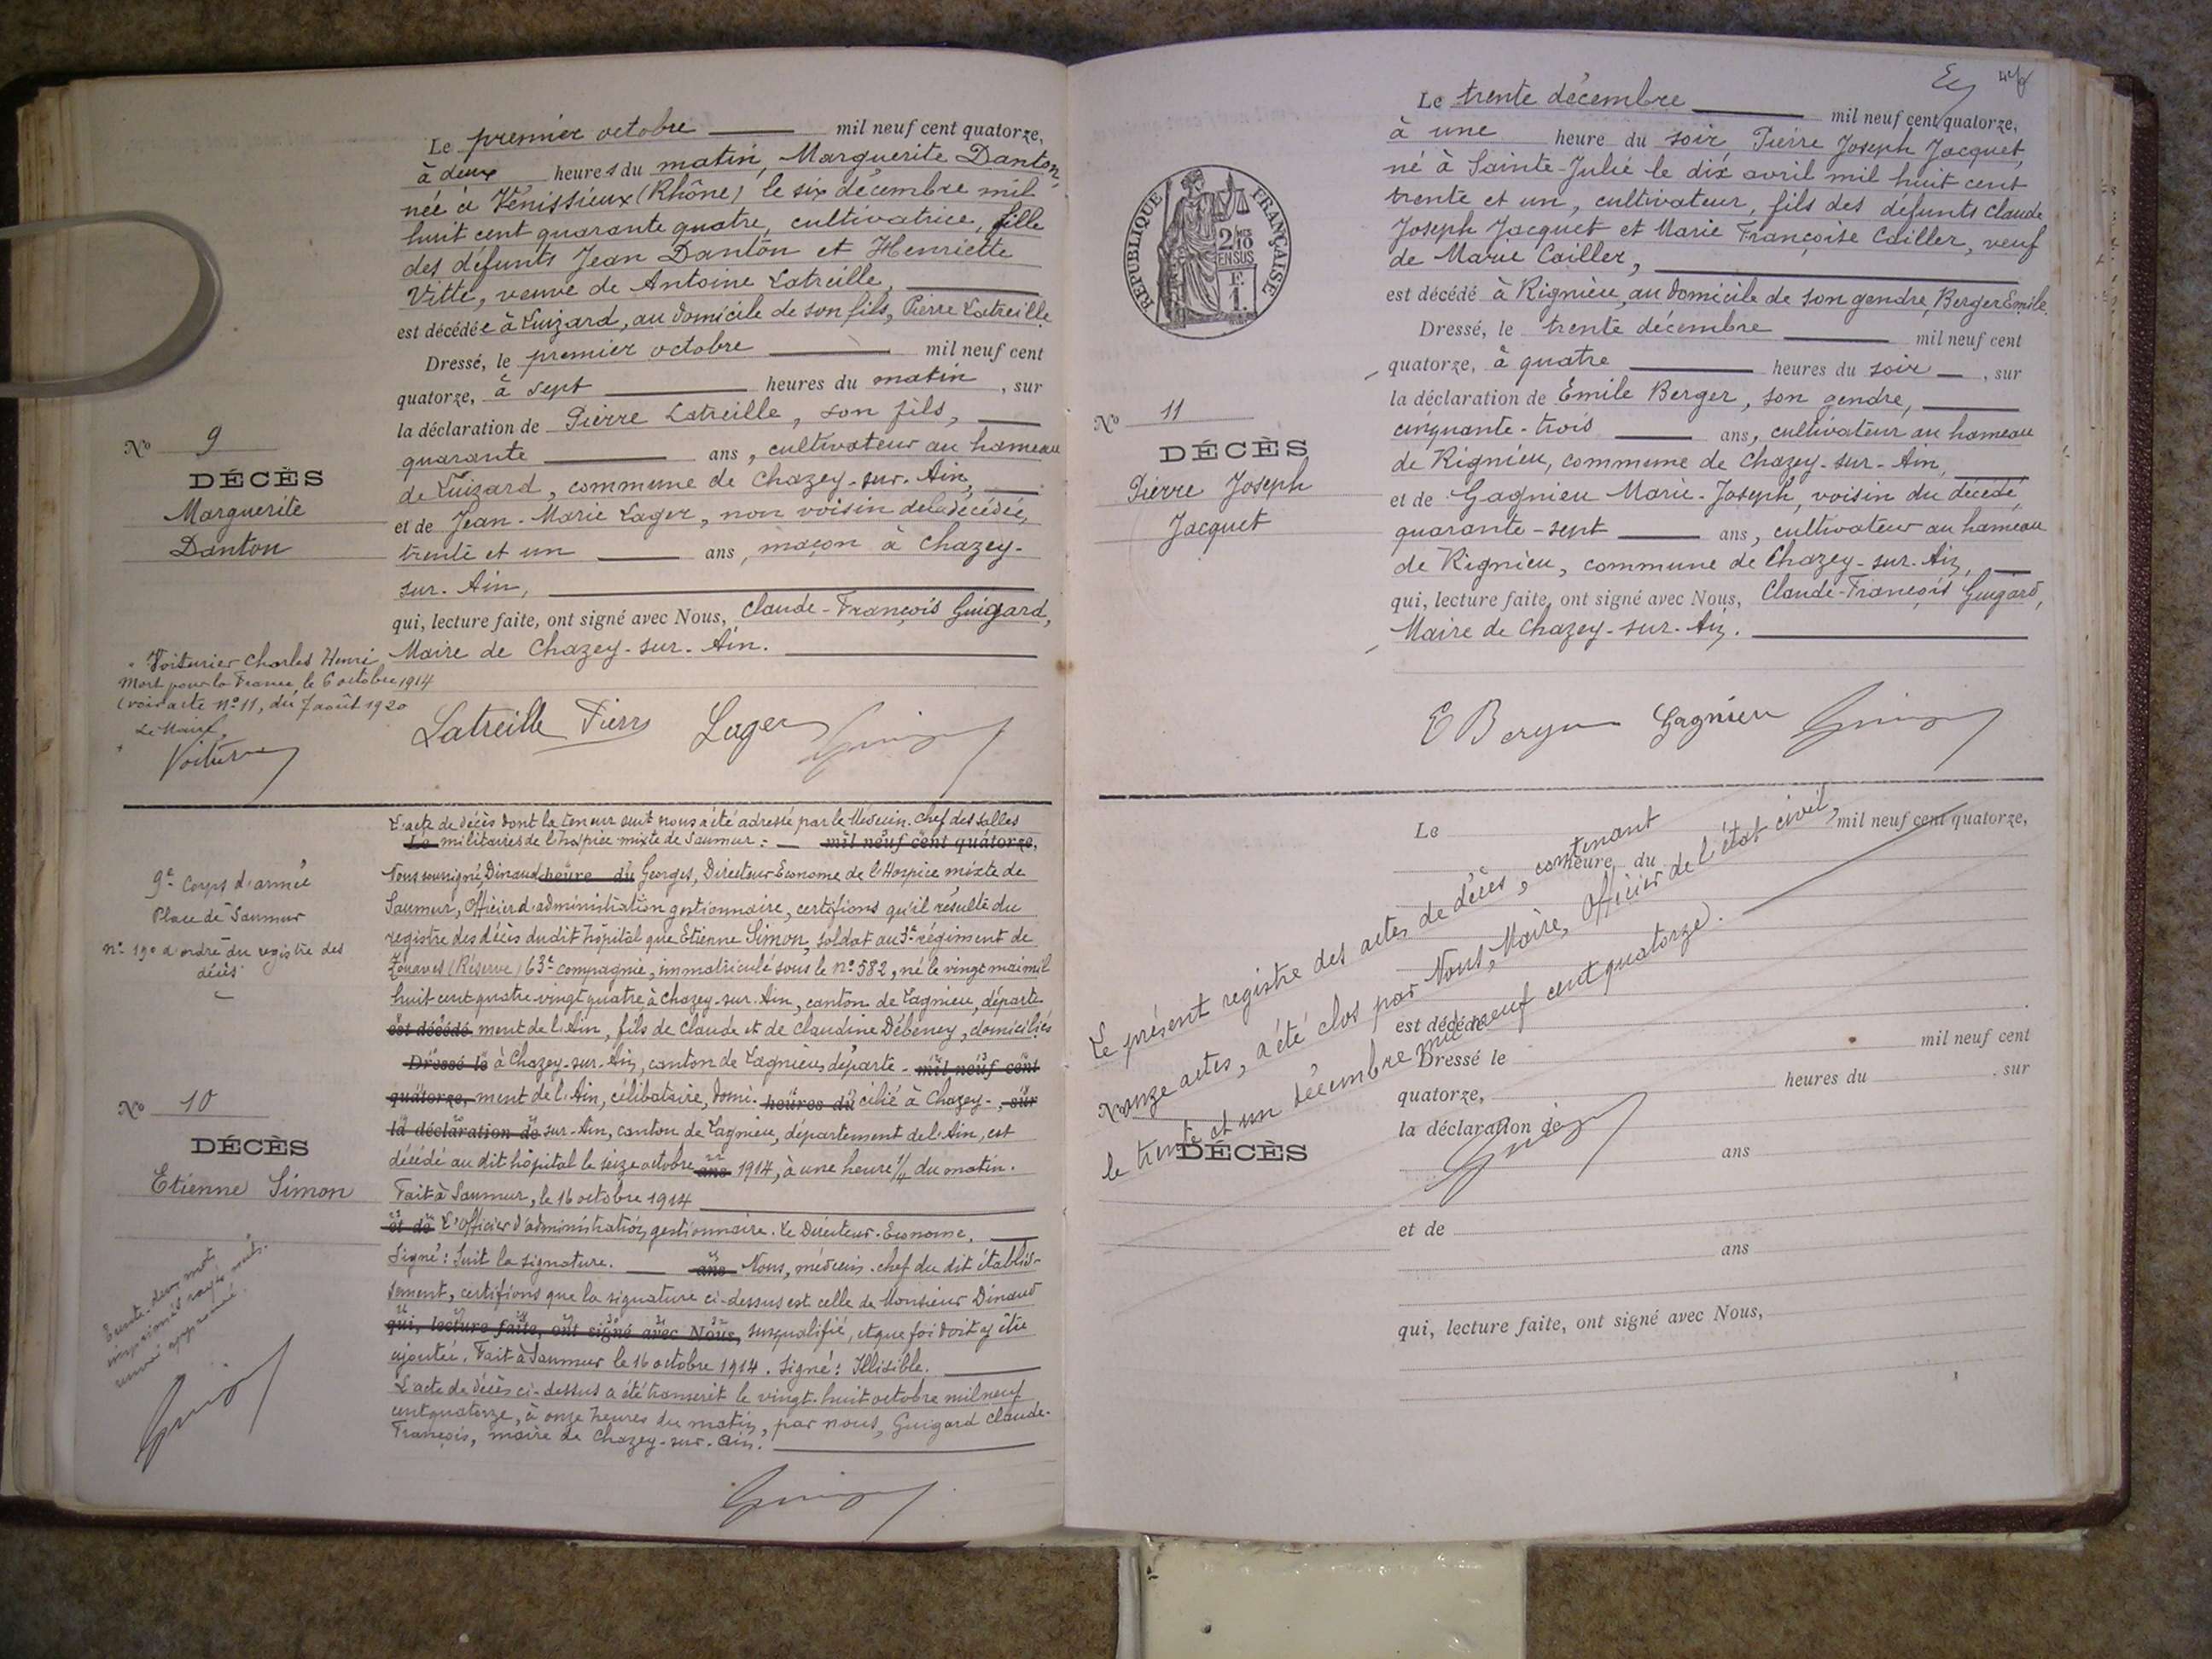 Le premier octobre mil neuf cent quatorze,
à deux heures du matin, Marguerite Danton,
née à Vénissieux (Rhône) le six décembre mil
huit cent quarante quatre, cultivatrice, fille
des défunts Jean Danton et Henriette
Vitte, veuve de Antoine Latreille,
est décédée à Luizard, au domicile de son fils, Pierre Latreille.
Dressé, le premier octobre mil neuf cent
quatorze, à sept heures du matin, sur
la déclaration de Pierre Latreille, son fils,
quarante ans, cultivateur au hameau
de Luizard, commune de Chazey-sur-Ain,
et de Jean-Marie Lager, non voisin de la décédée,
trente et un ans, maçon à Chazey-
sur-Ain,
qui, lecture faite, ont signé avec Nous, Claude-François Guigard,
Maire de Chazey-sur-Ain.
Latreille Pierre Lager
No 9
DÉCÈS
Marguerite
Danton
Voiturier Charles Henri
Mort pour la France, le 6 octobre 1914
(voir acte n° 11, du 7 août 1920
Le Maire,
L'acte de décès dont la teneur suit nous a été adressé par le Médecin-chef des salles
Le militaires de l'hospice mixte de Saumur : mil neuf cent quatorze,
Nous soussigné, Dinaud heure du Georges, Directeur Econome de l'Hospice mixte de
Saumur, Officier d'administration gestionnaire, certifions qu'il résulte du
registre des décès dudit hôpital que Etienne Simon, soldat au 3e régiment de
Zouaves (Réserve) 63e compagnie, immatriculé sous le n° 582, né le vingt mai mil
huit cent quatre-vingt quatre à Chazey-sur-Ain, canton de Lagnieu, départe-
est décédé ment de l'Ain, fils de Claude et de Claudine Débeney, domiciliés
Dressé le à Chazey-sur-Ain, canton de Lagnieu, départe- mil neuf cent
quatorze, ment de l'Ain, célibataire, domi- heures du cilié à Chazey- , sur
la déclaration de sur-Ain, canton de Lagnieu, département de l'Ain, est
décédé au dit hôpital le seize octobre ans 1914, à une heure 1/4 du matin.
Fait à Saumur, le 16 octobre 1914
et de L'Officier d'administration gestionnaire. Le Directeur-Econome,
Signé : Suit la signature. ans Nous, médecin-chef du dit établis-
sement, certifions que la signature ci-dessus est celle de Monsieur Dinaud
qui, lecture faite, ont signé avec Nous, susqualifié, et que foi doit y être
ajoutée. Fait à Saumur le 16 octobre 1914. Signé : Illisible.
L'acte de décès ci-dessus a été transcrit le vingt-huit octobre mil neuf
cent quatorze, à onze heures du matin, par nous, Guigard Claude-
François, maire de Chazey-sur-Ain.
9e Corps d'armée
Place de Saumur
n° 190 d'ordre du registre des
décès
No 10
DÉCÈS
Etienne Simon
Trente-deux mots
imprimés rayés nuls.
RÉPUBLIQUE FRANÇAISE
2/10
EN SUS
F.
1.
Le trente décembre mil neuf cent quatorze,
à une heure du soir Pierre Joseph Jacquet,
né à Sainte-Julie le dix avril mil huit cent
trente et un, cultivateur, fils des défunts Claude
Joseph Jacquet et Marie Françoise Cailler, veuf
de Marie Cailler,
est décédé à Rignieu, au domicile de son gendre, Berger Emile.
Dressé, le trente décembre mil neuf cent
quatorze, à quatre heures du soir, sur
la déclaration de Emile Berger, son gendre,
cinquante-trois ans, cultivateur au hameau
de Rignieu, commune de Chazey-sur-Ain,
et de Gagnieu Marie-Joseph, voisin du décédé,
quarante-sept ans, cultivateur au hameau
de Rignieu, commune de Chazey-sur-Ain,
qui, lecture faite, ont signé avec Nous, Claude-François Guigard,
Maire de Chazey-sur-Ain.
E Berger Gagnieu
No 11
DÉCÈS
Pierre Joseph
Jacquet
Le présent registre des actes de décès, contenant
onze actes, a été clos par Nous, Maire, Officier de l'état civil,
le trente et un décembre mil neuf cent quatorze.
Le mil neuf cent quatorze,
heure du
est décédé
Dressé le mil neuf cent
quatorze, heures du , sur
la déclaration de
ans
et de
ans
qui, lecture faite, ont signé avec Nous,
No
DÉCÈS